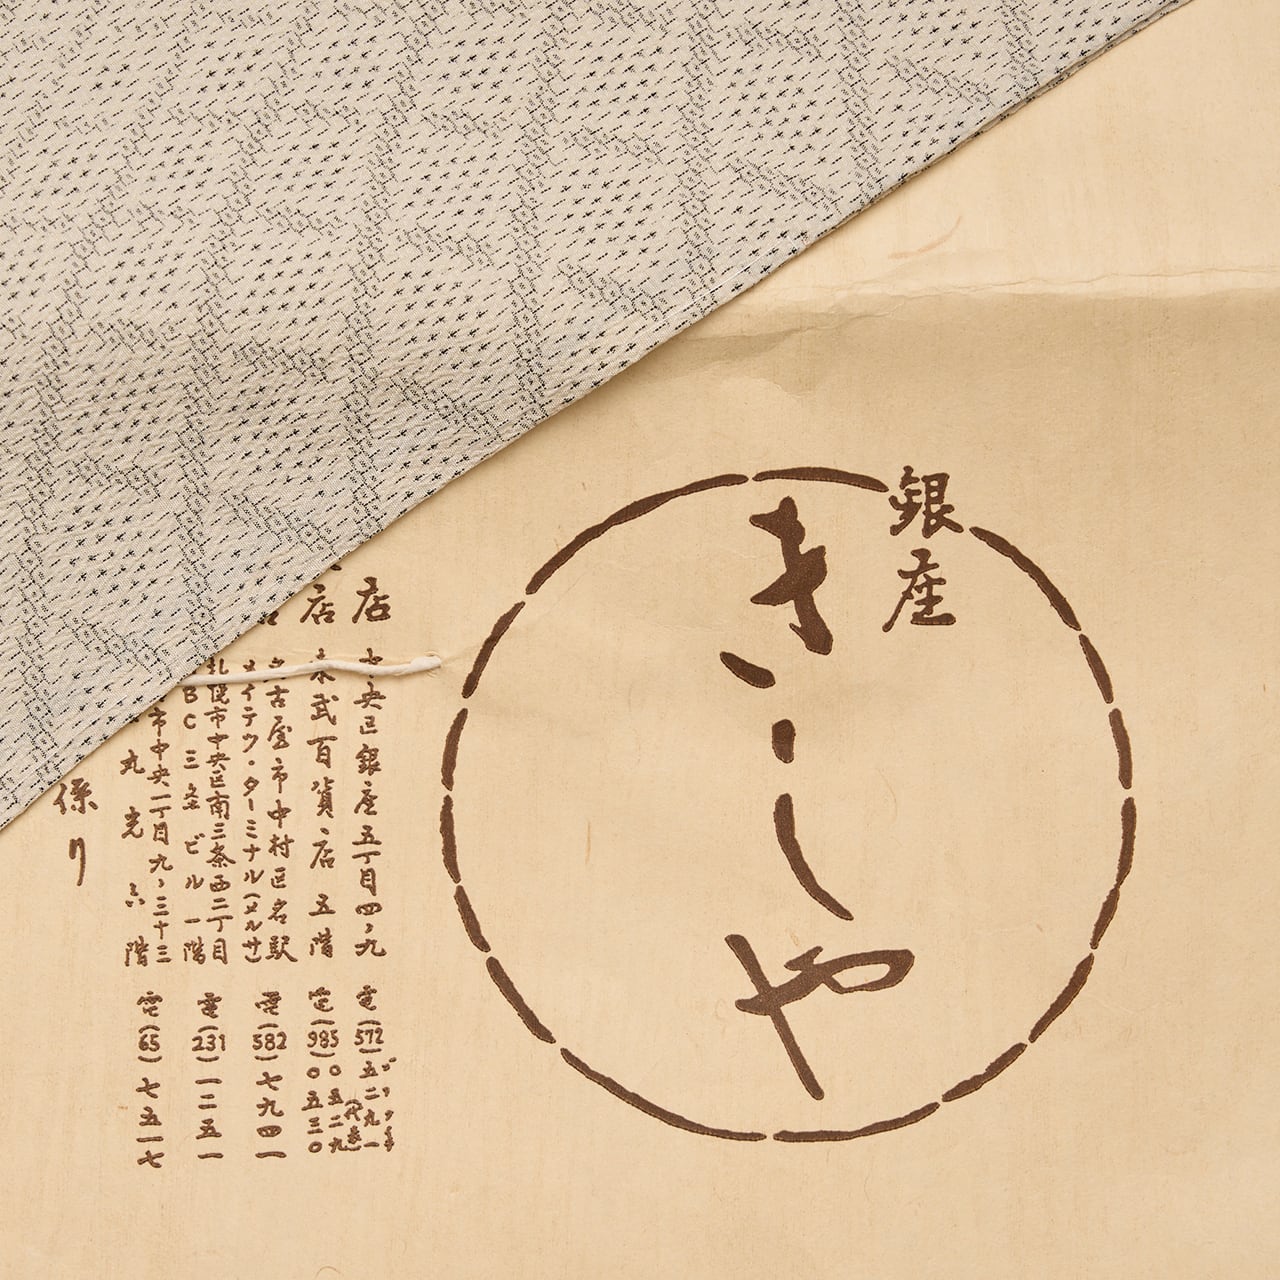 銀座
きしや
店
中央区銀座五丁目四、九
電(572)五二九一
店
武百貨店 五階
電(985)〇五二九
〇五三〇
古屋市中村区名駅
メイテツ・ターミナル(メルサ)
電(582)七九四一
札幌市中央区南三条西二丁目
BC三条ビル一階
電(231)一二五一
市中央一丁目九、三十三
丸光六階
電(65)七五一七
係り